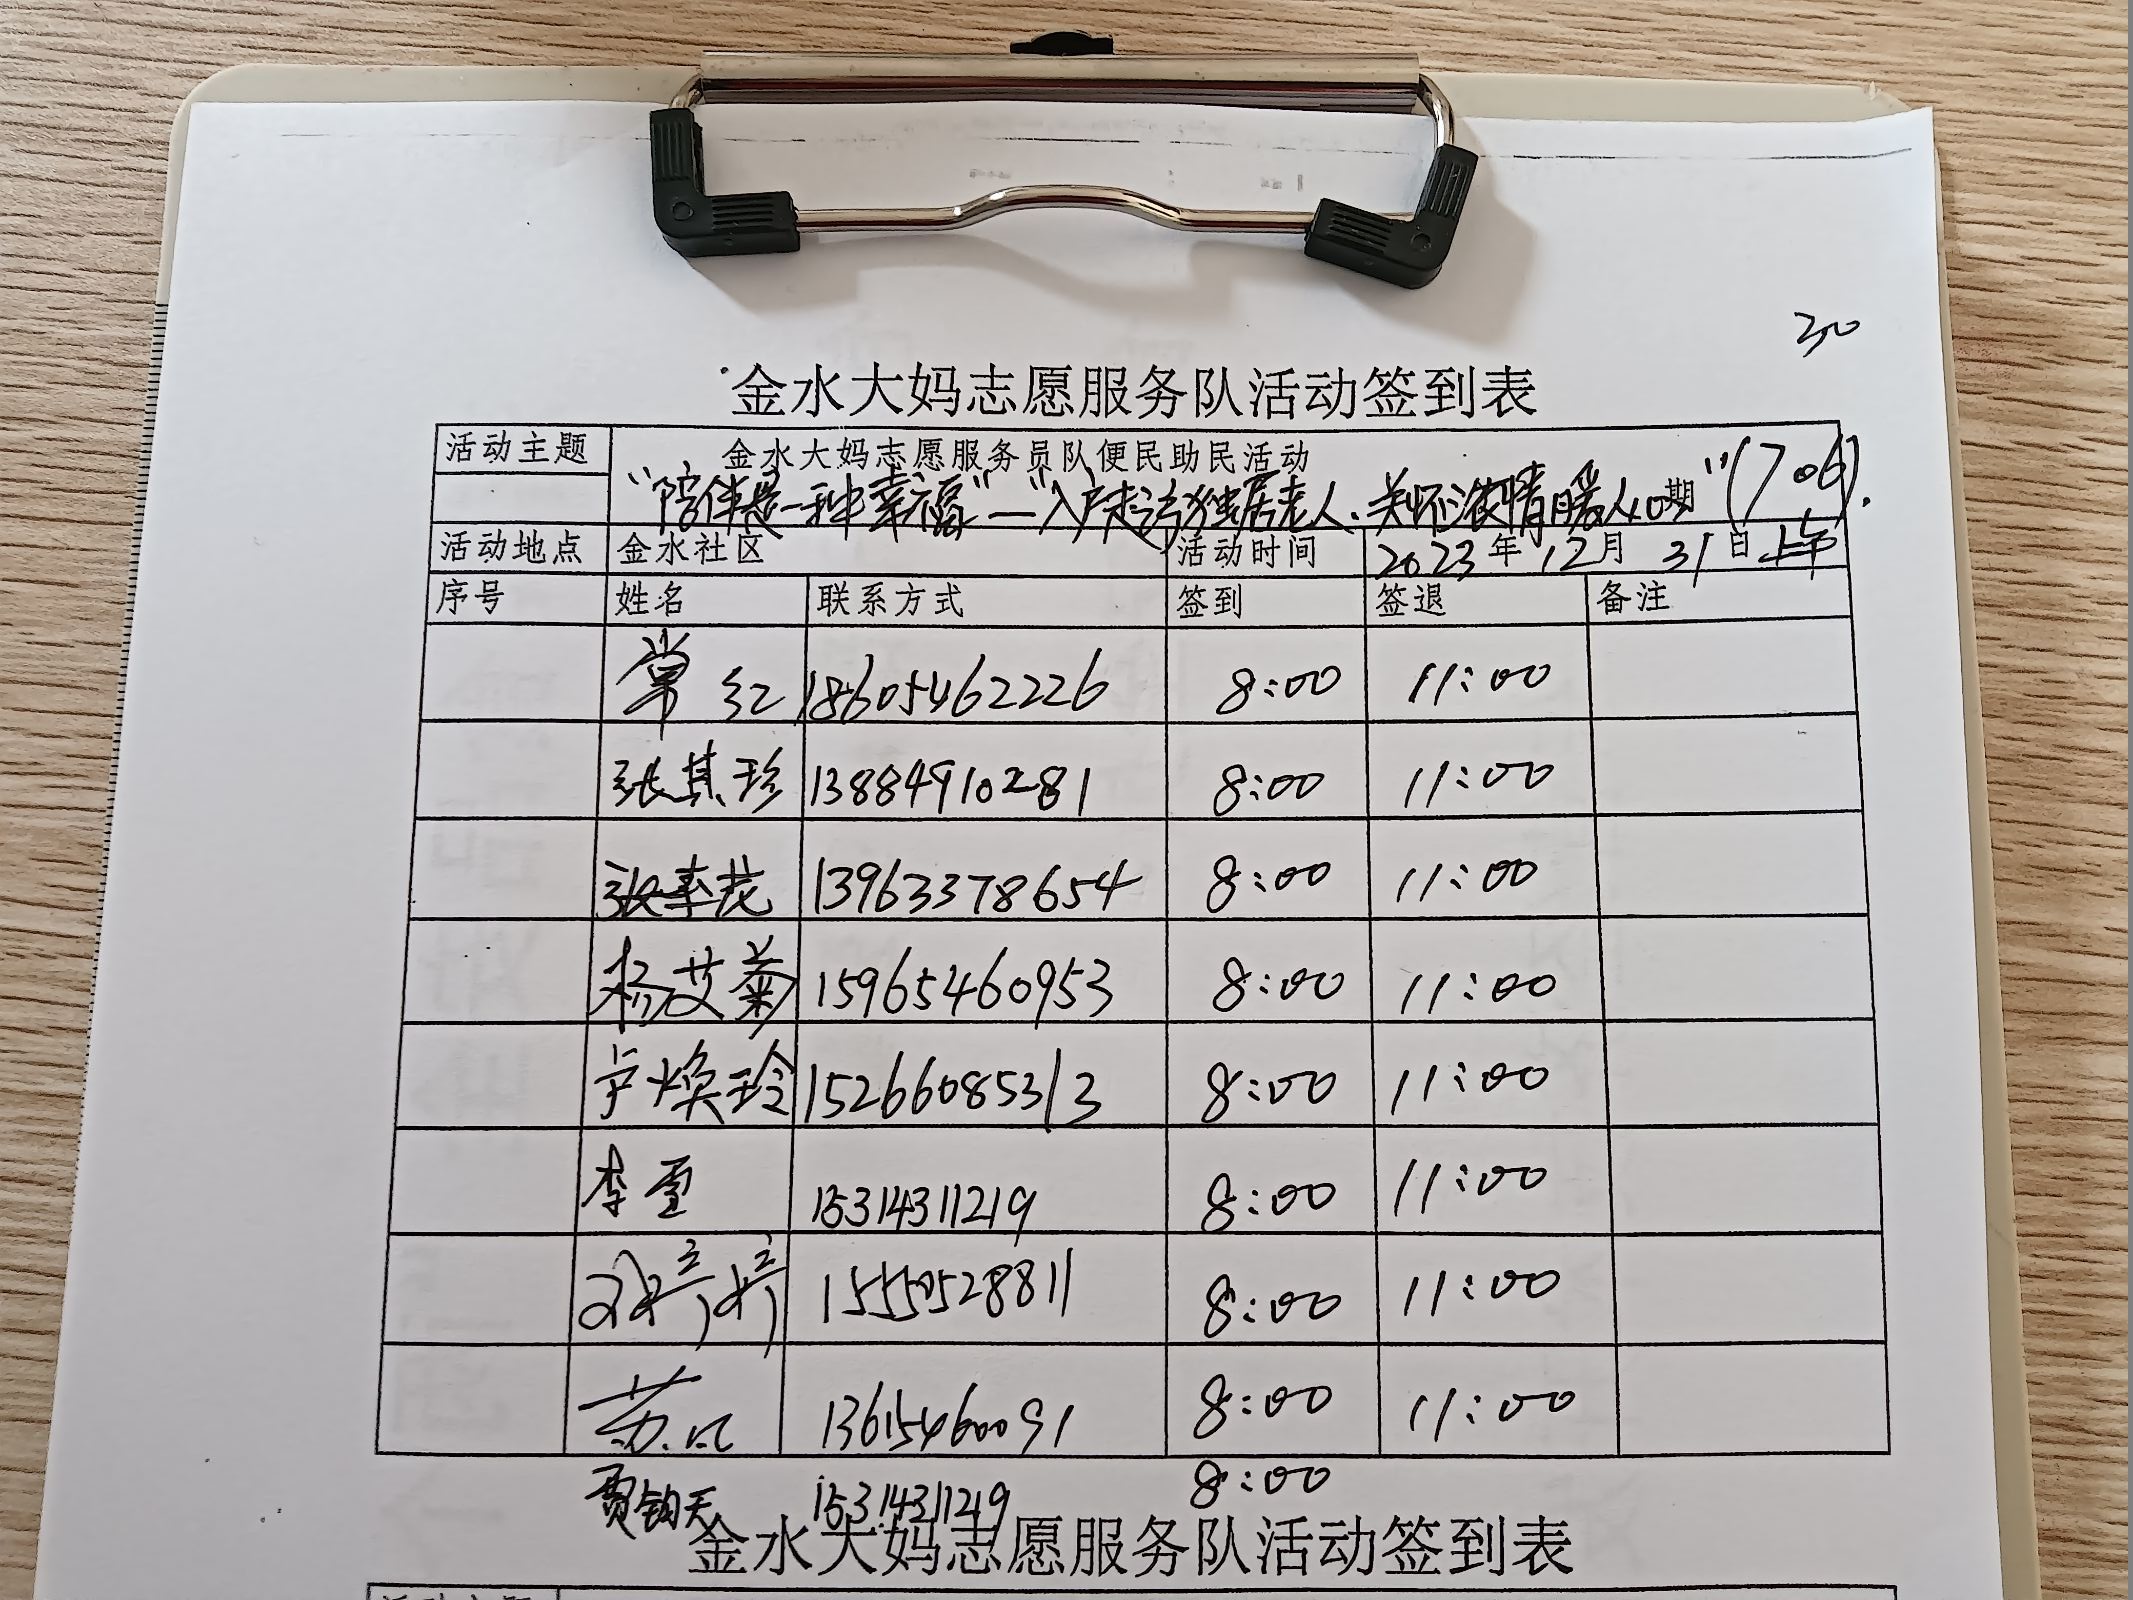 30
金水大妈志愿服务队活动签到表
活动主题 金水大妈志愿服务员队便民助民活动
“陪伴是一种幸福”—“入户走访独居老人.关怀浓情暖人心期”(706).
活动地点 金水社区 活动时间 2023年12月31日上午
序号 姓名 联系方式 签到 签退 备注
常红 18605462226 8:00 11:00
张其珍 13884910281 8:00 11:00
张季花 13963378654 8:00 11:00
杨艾菊 15965460953 8:00 11:00
卢焕玲 15266085313 8:00 11:00
李雪 15314311219 8:00 11:00
刘婷婷 15550528811 8:00 11:00
苏 13615460091 8:00 11:00
贾钧天 15314311219 8:00
金水大妈志愿服务队活动签到表
活动主题